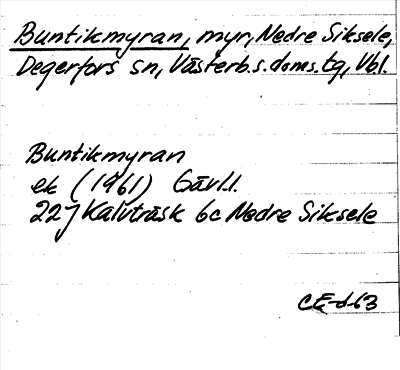 Buntikmyran, myr, Nedre Siksele,
Degerfors sn, Västerb.s.doms.tg, Vbl.
Buntikmyran
ek (1961) Gävl.l.
22J Kalvträsk 6c Nedre Siksele
CE-d-63